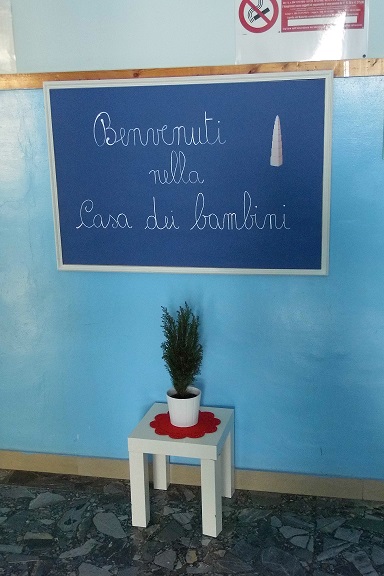 Benvenuti
nella
Casa dei bambini